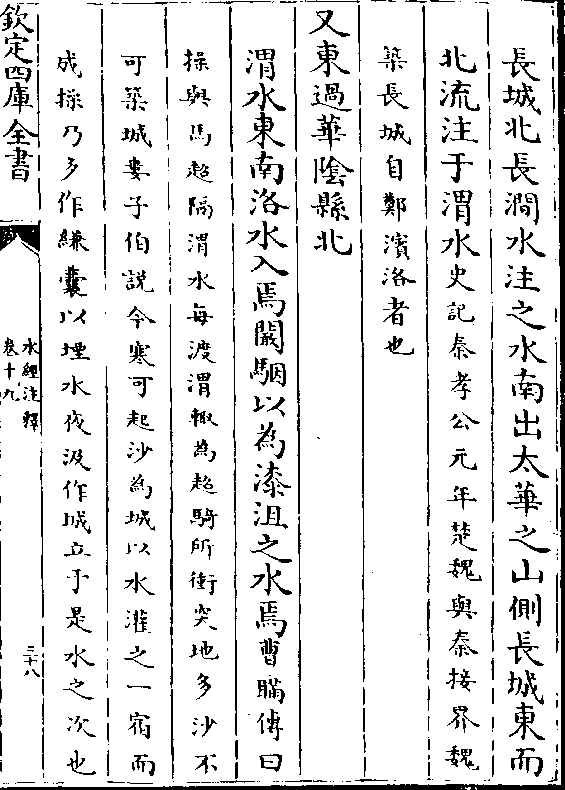 長城北長澗水注之水南出太華之山側長城東而
北流注于渭水史記秦孝公元年楚魏與秦接界魏
築長城自鄭濱洛者也
又東過華陰縣北
渭水東南洛水入焉闞駰以為漆沮之水焉曹瞞傳曰
操與馬超隔渭水每渡渭輒為超騎所衝突地多沙不
可築城婁子伯説今寒可起沙為城以水灌之一宿而
成操乃多作縑囊以堙水夜汲作城立于是水之次也
欽定四庫全書
水經注釋
卷十九
三十八